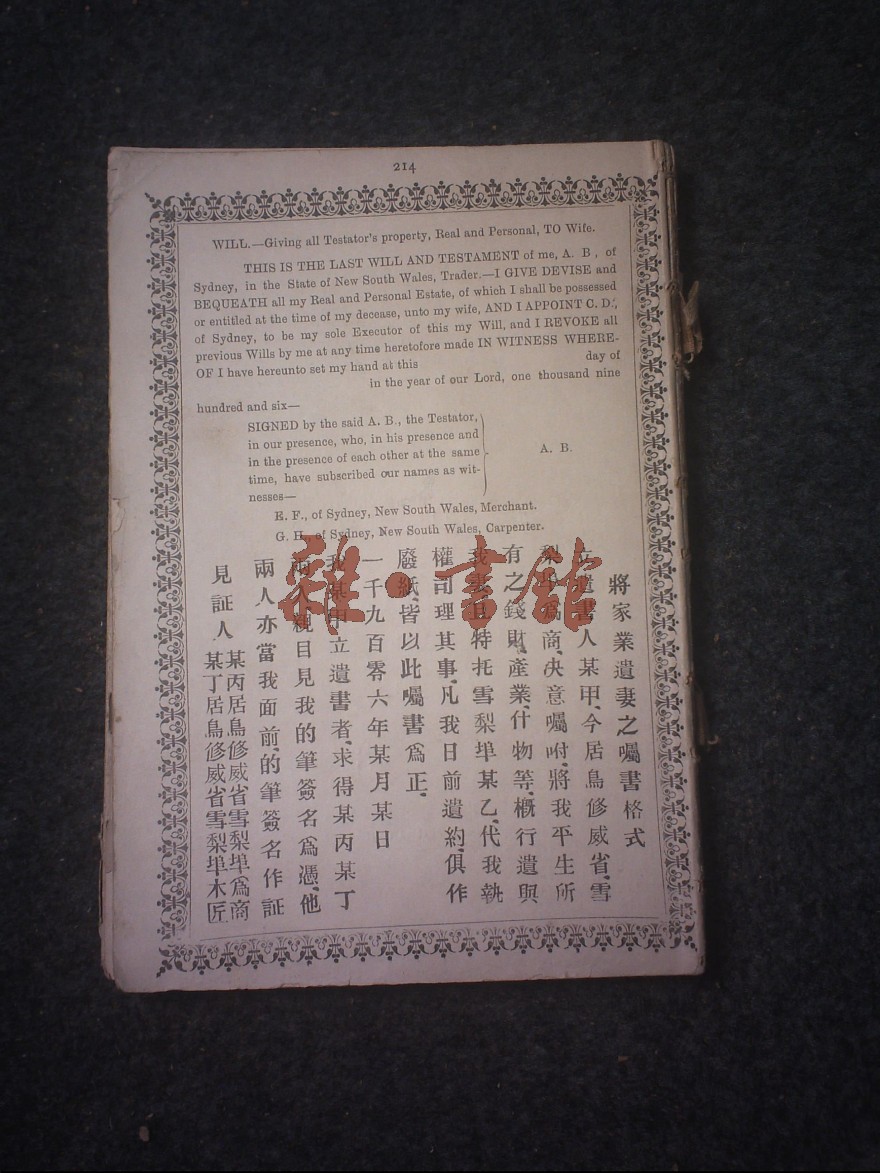 214
WILL.—Giving all Testator's property, Real and Personal, TO Wife.
THIS IS THE LAST WILL AND TESTAMENT of me, A. B., of
Sydney, in the State of New South Wales, Trader.—I GIVE DEVISE and
BEQUEATH all my Real and Personal Estate, of which I shall be possessed
or entitled at the time of my decease, unto my wife, AND I APPOINT C. D.,
of Sydney, to be my sole Executor of this my Will, and I REVOKE all
previous Wills by me at any time heretofore made IN WITNESS WHERE-
OF I have hereunto set my hand at this day of
in the year of our Lord, one thousand nine
hundred and six—
SIGNED by the said A. B., the Testator,
in our presence, who, in his presence and
in the presence of each other at the same
time, have subscribed our names as wit-
nesses—
A. B.
E. F., of Sydney, New South Wales, Merchant.
G. H., of Sydney, New South Wales, Carpenter.
將家業遺妻之囑書格式
立遺書人某甲、今居鳥修威省、雪
梨埠爲商、决意囑咐、將我平生所
有之錢財、產業、什物等、概行遺與
我妻、且特托雪梨埠某乙、代我執
權司理其事、凡我日前遺約、俱作
廢紙、皆以此囑書爲正、
一千九百零六年某月某日
我某甲立遺書者、求得某丙某丁
兩人親目見我的筆簽名爲憑、他
兩人亦當我面前、的筆簽名作証
見証人
某丙居鳥修威省雪梨埠爲商
某丁居鳥修威省雪梨埠木匠
雜·書館